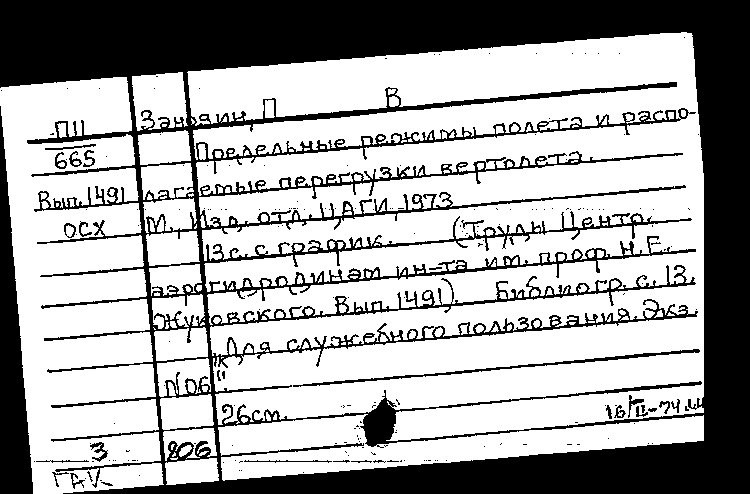 П11 В
665 Предельные режимы полета и распо-
Вып.1491 лагаемые перегрузки вертолета.
ОСХ М., Изд. отд. ЦАГИ, 1973
13 с. с график. (Труды Центр.
аэрогидродинам ин-та им. проф. Н.Е.
Жуковского. Вып. 1491). Библиогр. с. 13.
"Для служебного пользования. Экз.
N06".
26см. 16/II-74
3 806
ГАК